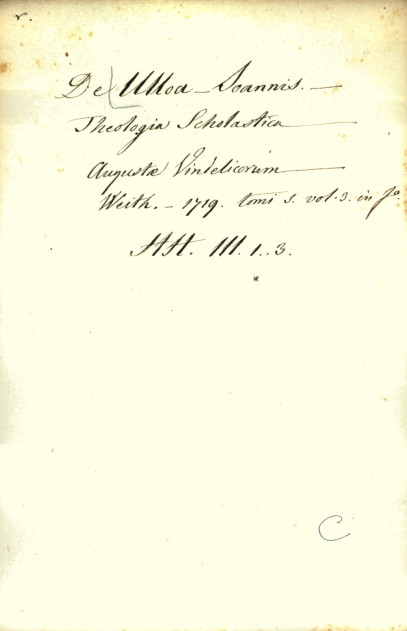 De Ulloa - Joannis. —
Theologia Scholastica
Augustæ Vindelicorum
Weith. - 1719. tomi 5. vol. 3. in f.o
HH. III. 1..3.
*
C